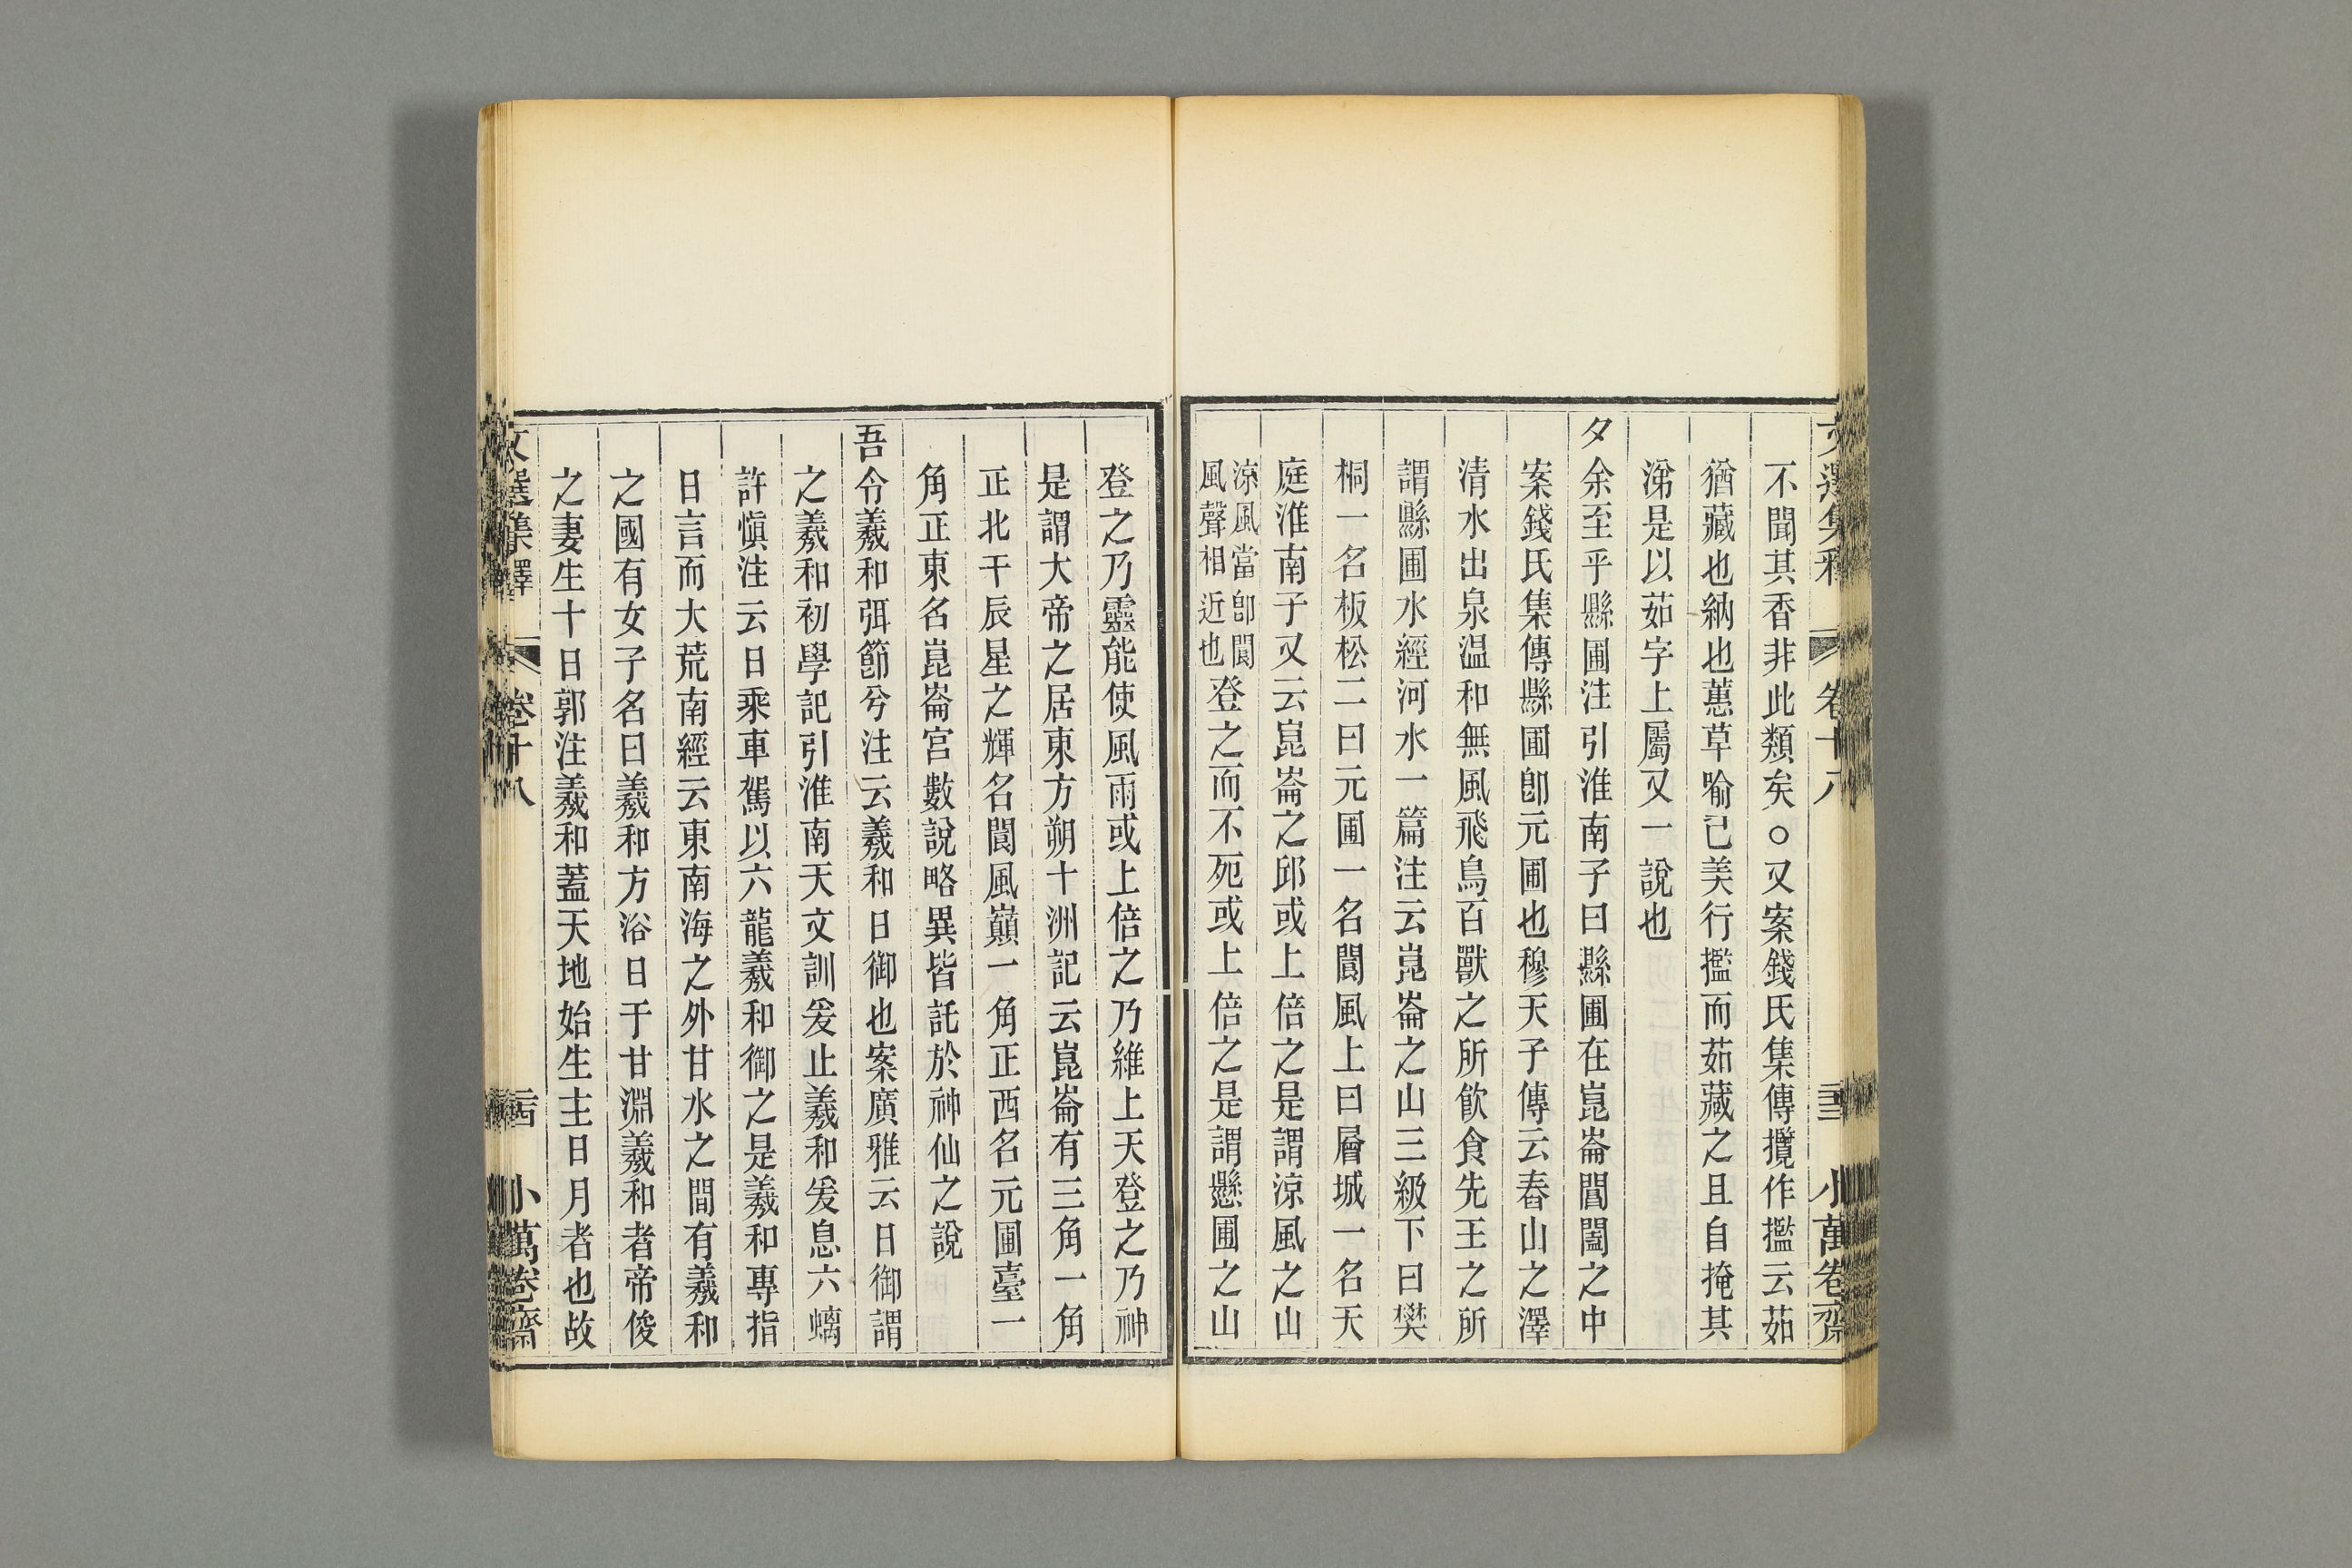 文選集釋 卷十八 三三 小萬卷齋
不聞其香非此類矣○又案錢氏集傳攬作擥云茹
猶藏也納也蕙草喻己美行擥而茹藏之且自掩其
涕是以茹字上屬又一說也
夕余至乎縣圃注引淮南子曰縣圃在崑崙閶闔之中
案錢氏集傳縣圃卽元圃也穆天子傳云舂山之澤
清水出泉温和無風飛鳥百獸之所飮食先王之所
謂縣圃水經河水一篇注云崑崙之山三級下曰樊
桐一名板松二曰元圃一名閬風上曰層城一名天
庭淮南子又云崑崙之邱或上倍之是謂涼風之山
涼風當卽閬
風聲相近也
登之而不死或上倍之是謂懸圃之山
登之乃靈能使風雨或上倍之乃維上天登之乃神
是謂大帝之居東方朔十洲記云崑崙有三角一角
正北干辰星之輝名閬風巔一角正西名元圃臺一
角正東名崑崙宫數說略異皆託於神仙之說
吾令羲和弭節兮注云羲和日御也案廣雅云日御謂
之羲和初學記引淮南天文訓爰止羲和爰息六螭
許愼注云日乘車駕以六龍羲和御之是羲和專指
日言而大荒南經云東南海之外甘水之間有羲和
之國有女子名曰羲和方浴日于甘淵羲和者帝俊
之妻生十日郭注羲和蓋天地始生主日月者也故
文選集釋 卷十八 三四 小萬卷齋